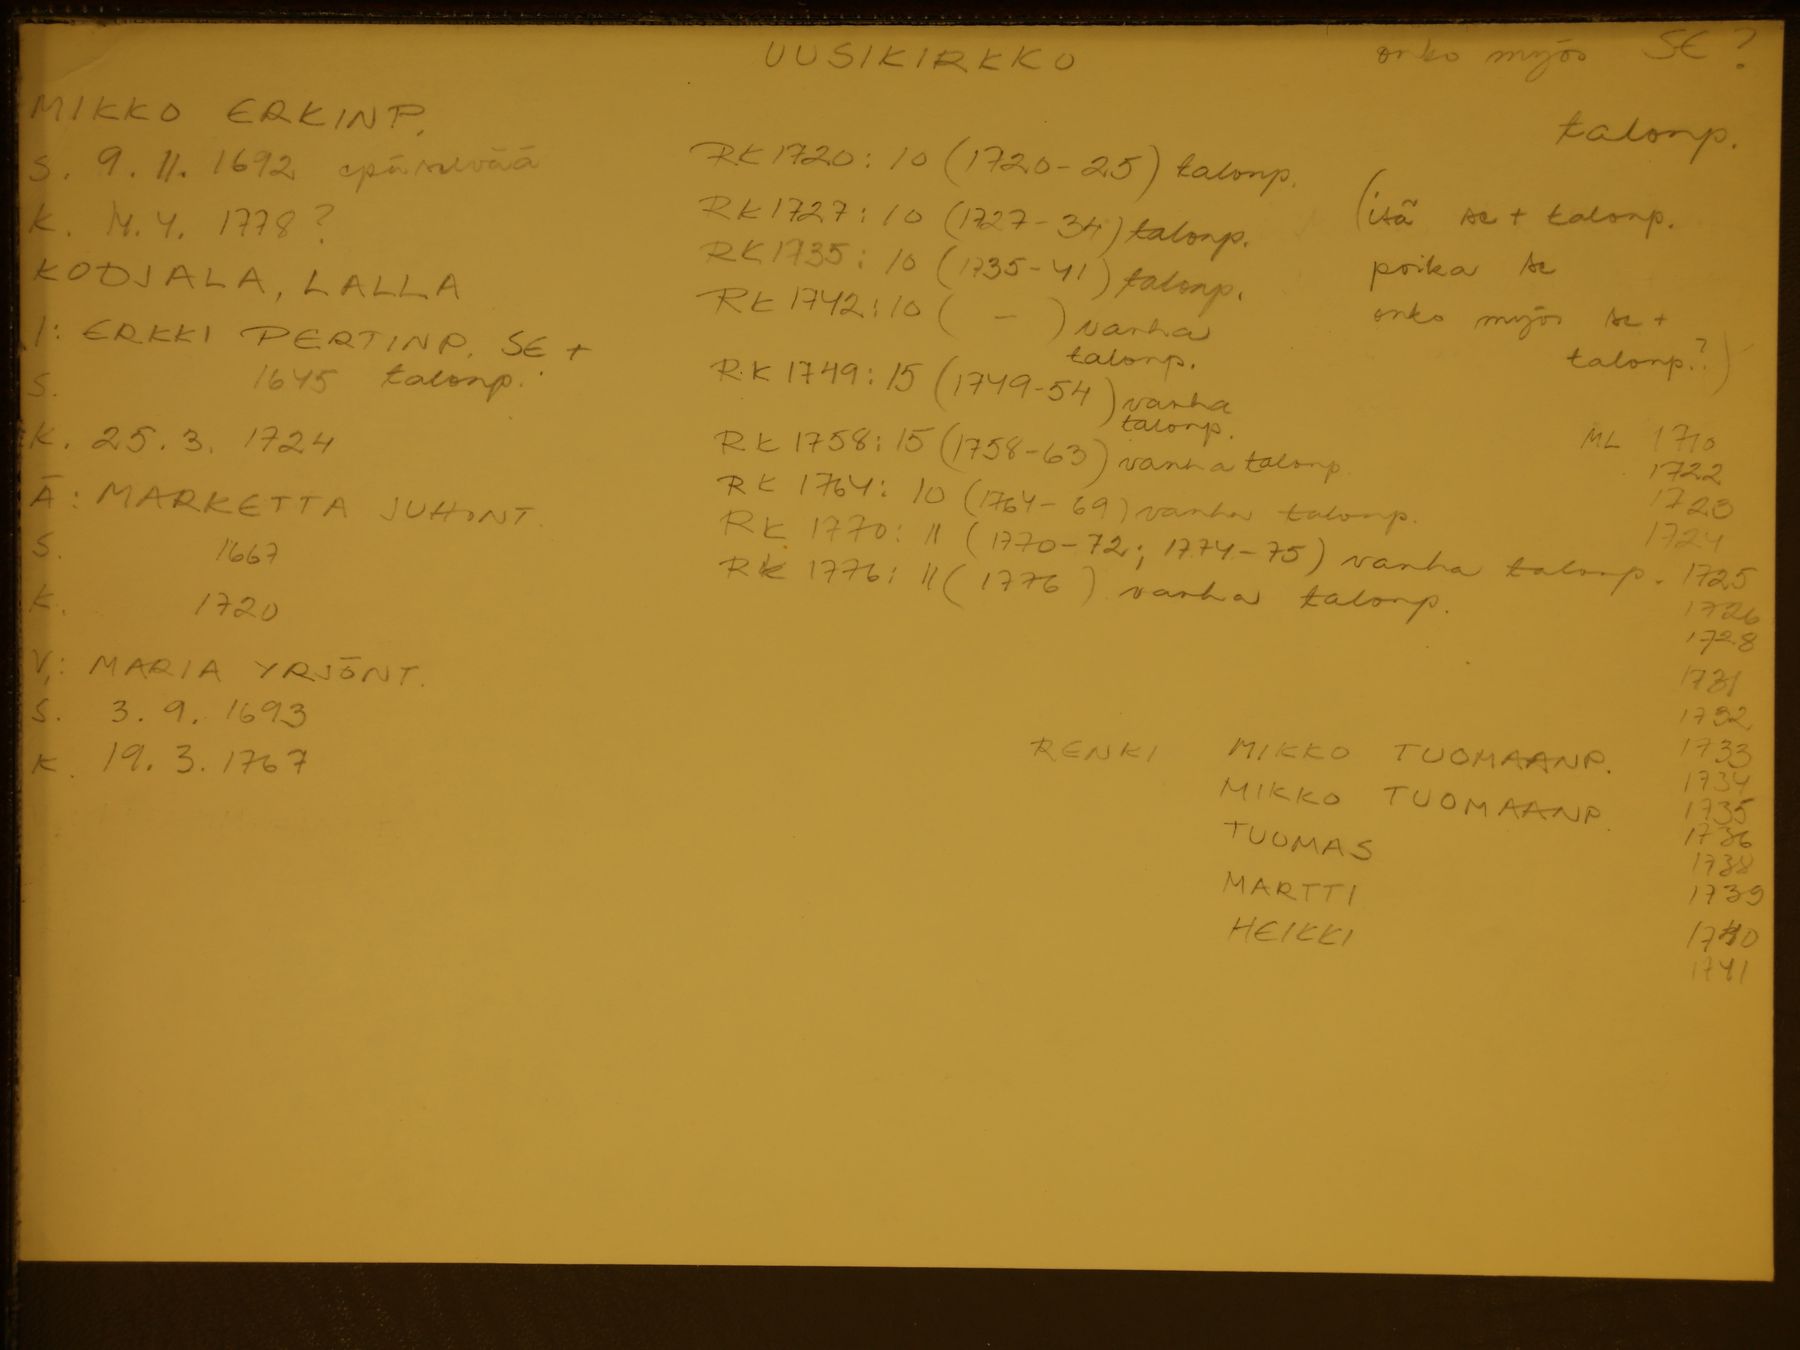 UUSIKIRKKO
onko myös SE?
talonp.
MIKKO ERKINP.
S. 9.11.1692 epäselvää
K. 14.4. 1778?
KODJALA, LALLA
I: ERKKI PERTINP. SE +
S. 1645 talonp.
K. 25.3. 1724
Ä: MARKETTA JUHONT.
S. 1667
K. 1720
V: MARIA YRJÖNT.
S. 3.9. 1693
K. 19.3.1767
RK 1720: 10 (1720-25) talonp.
RK 1727: 10 (1727-34) talonp.
RK 1735: 10 (1735-41) talonp.
RK 1742: 10 ( - ) vanha
talonp.
RK 1749: 15 (1749-54) vanha
talonp.
RK 1758: 15 (1758-63) vanha talonp.
RK 1764: 10 (1764-69) vanha talonp.
RK 1770: 11 (1770-72; 1774-75) vanha talonp.
RK 1776: 11 (1776) vanha talonp.
(isä se + talonp.
poika se
onko myös se +
talonp.?)
ML 1710
1722
1723
1724
1725
1726
1728
1731
1732
1733
1734
1735
1736
1738
1739
1740
1741
RENKI MIKKO TUOMAANP.
MIKKO TUOMAANP.
TUOMAS
MARTTI
HEIKKI